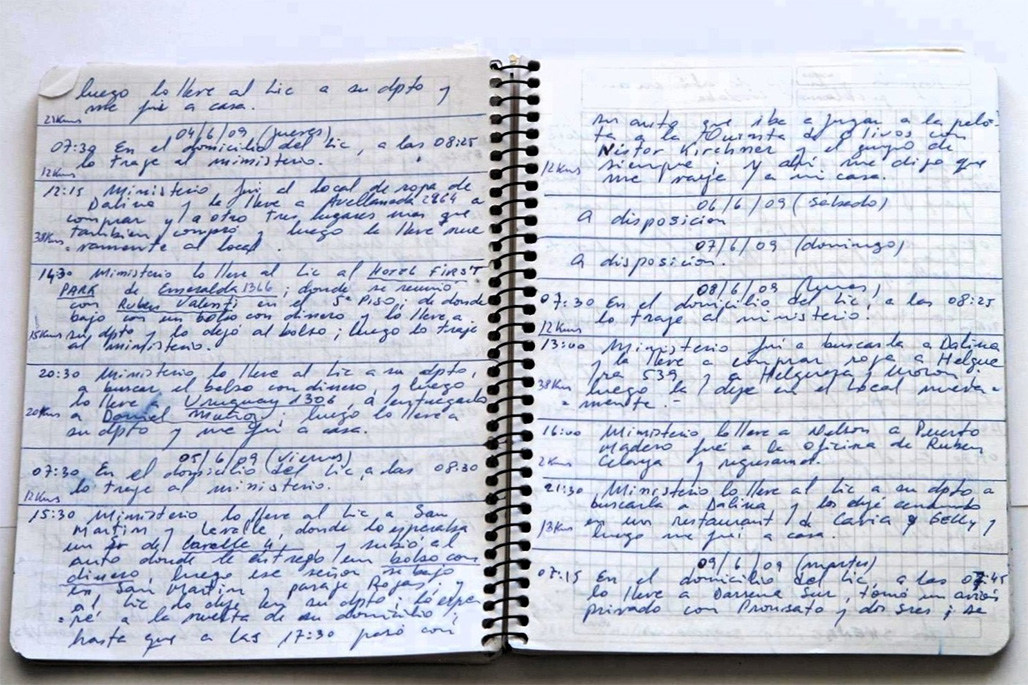 luego lo lleve al Lic a su dpto y
me fui a casa.
21Kms
04/6/09 (jueves)
07:30 En el domicilio del Lic, a las 08:25
lo traje al ministerio.
12Kms
12:15 Ministerio fui al local de ropa de
Dalina y la lleve a Avellaneda 2964 a
comprar y a otro tres lugares mas que
también compró y luego la lleve nue
38Kms -vamente al local.
14:30 Ministerio lo lleve al Lic al HOTEL FIRST
PARK de Esmeralda 1366; donde se reunió
con Ruben Valenti en el 5º Piso; de donde
bajo con un bolso con dinero y lo lleve a
15Kms su dpto y lo dejó al bolso; luego lo traje
al ministerio.
20:30 Ministerio lo lleve al Lic a su dpto,
a buscar el bolso con dinero, y luego
lo lleve a Uruguay 1306 a entregarlo
20Kms a Daniel Muñoz; luego lo lleve a
su dpto y me fui a casa.
05/6/09 (viernes)
07:30 En el domicilio del Lic, a las 08:30
lo traje al ministerio.
12Kms
15:30 Ministerio lo lleve al Lic a San
Martin y Lavalle, donde lo esperaba
un Sr de Lavalle y subió al
auto donde le entrego un bolso con
dinero, luego ese señor se bajo
en San Martin y pasaje Rojas, y
al Lic lo deje en su dpto; lo espe
-ré a la vuelta de su domicilio,
hasta que a las 17:30 pasó con
su auto que iba a jugar a la pelo-
ta a la Quinta de Olivos con
Néstor Kirchner y el grupo de
12Kms siempre; y ahi me dijo que
me vaya a mi casa.
06/6/09 (sabado)
A disposicion
07/6/09 (domingo)
A disposicion.
08/6/09 (lunes)
07:30 En el domicilio del Lic, a las 08:25
lo traje al ministerio.
12Kms
13:00 Ministerio fui a buscarla a Dalina
y la lleve a comprar ropa a Helgue
ra 539 y a Helguera y Moron
38Kms luego la deje en el local nueva-
-mente.-
16:00 Ministerio lo lleve a Nelson a Puerto
Madero fue a la oficina de Ruben
2Kms y regresamos.
21:30 Ministerio lo lleve al Lic a su dpto a
buscarla a Dalina y los deje cenando
13Kms en un restaurant de Cavia y Gelly y
luego me fui a casa.
09/6/09 (martes)
07:15 En el domicilio del Lic, a las 07:45
lo lleve a Darsena Sur, tomó un avión
privado con Pronsato y dos sres; se